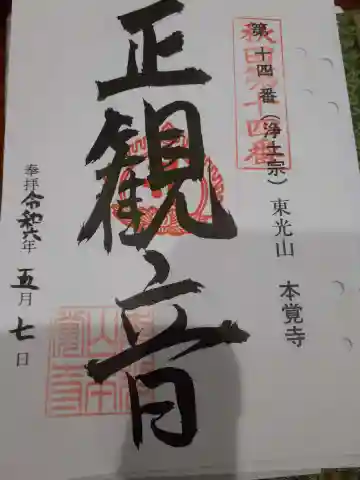 秋田第十四番
第十四番(浄土宗)東光山 本覚寺
正観音
奉拝 令和六年 五月 七日